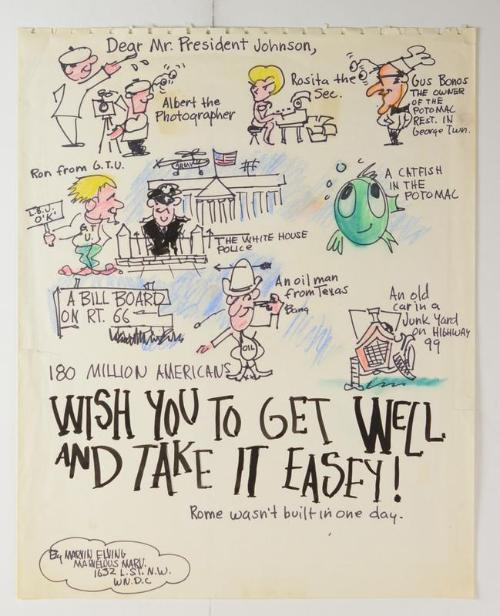 Dear Mr. President Johnson,
Albert the
Photographer
Rosita the
Sec.
Gus Bonos
THE OWNER
OF THE
POTOMAC
REST. IN
George Twn.
Ron from G.T.U.
L.B.J.
O'K'
G.T.
U.
ARMY
THE WHITE HOUSE
POLICE
A CATFISH
IN THE
POTOMAC
A BILL BOARD
ON RT. 66
An oil man
from Texas
Bang
OIL
An old
car in a
Junk Yard
on HIGHWAY
99
180 MILLION AMERICANS
WISH YOU TO GET WELL
AND TAKE IT EASEY!
Rome wasn't built in one day.
By MARVIN
MARVELOUS MARV.
1632 L. ST. N.W.
WN. D.C